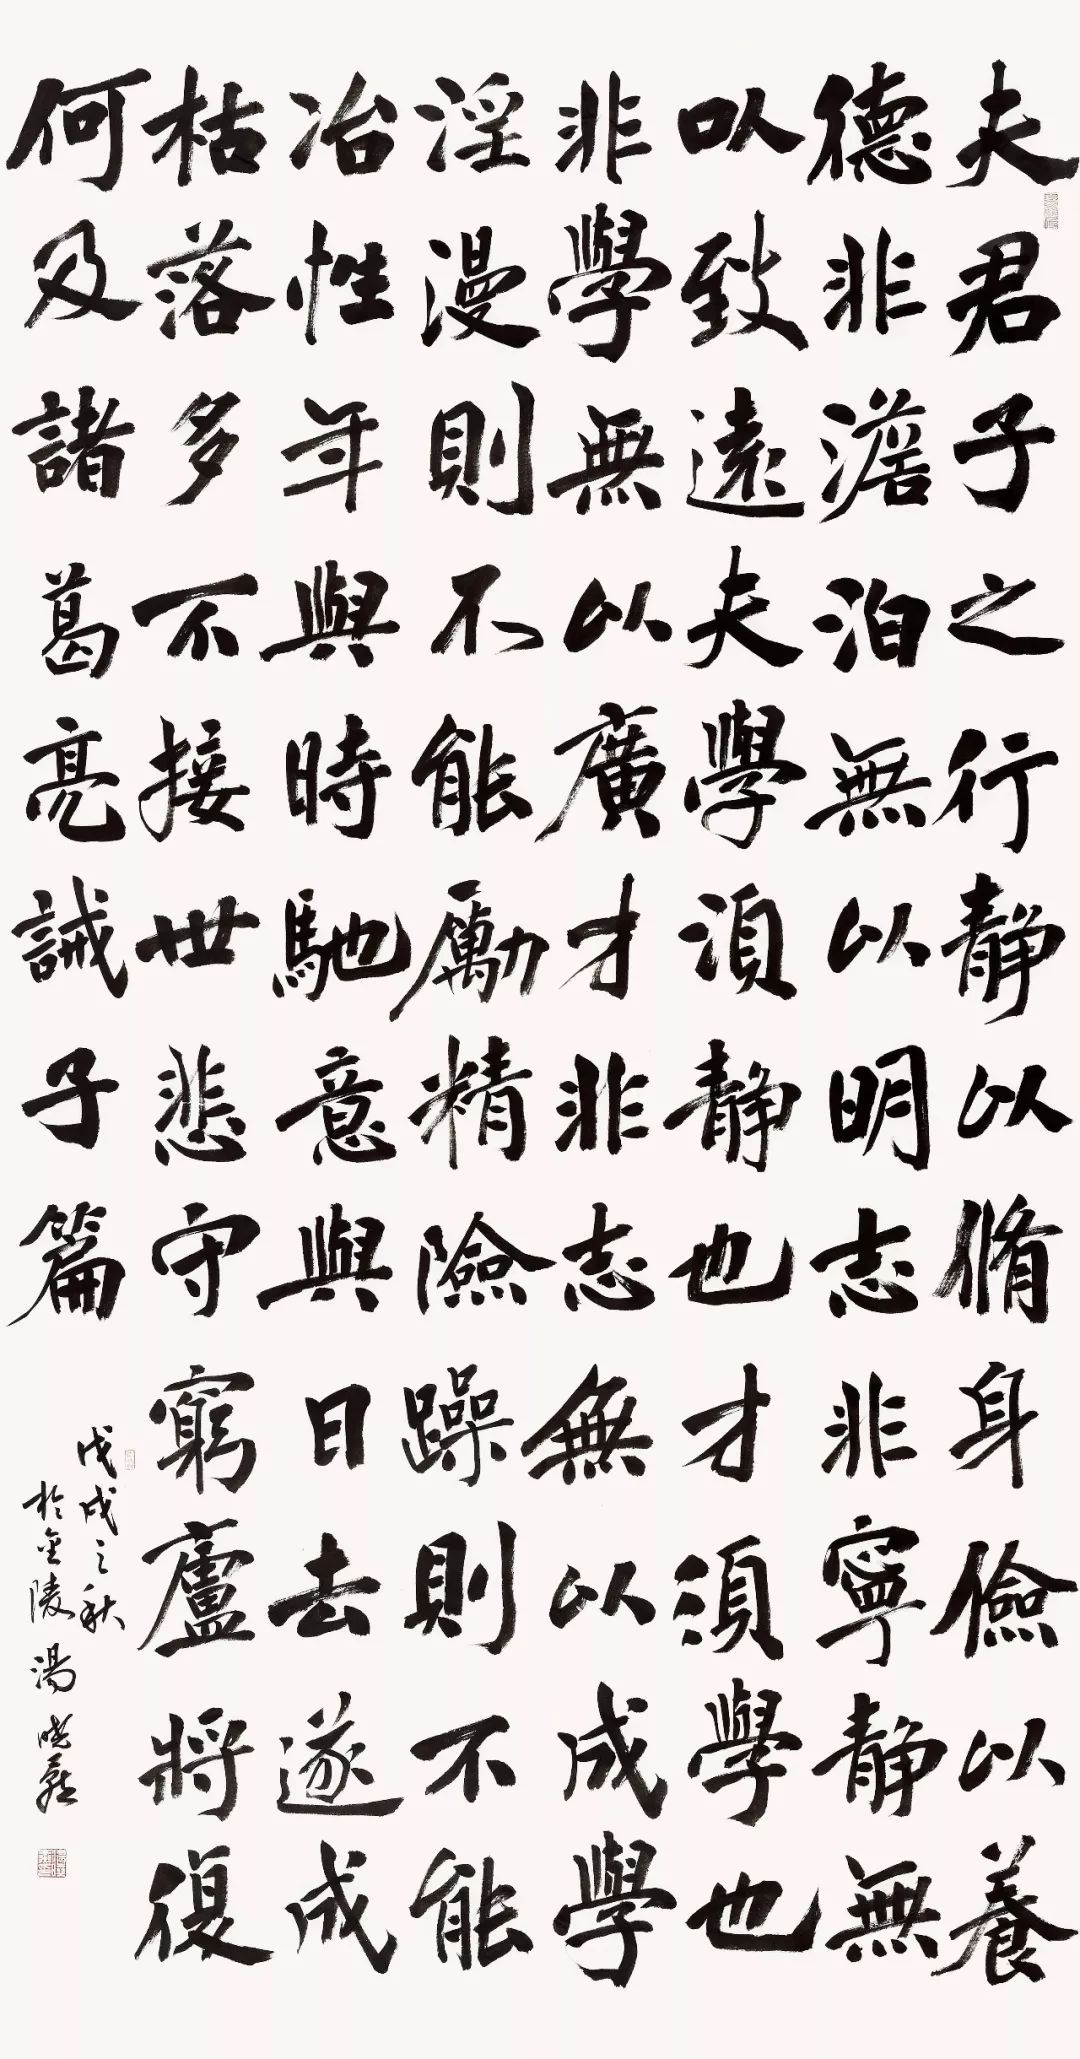 夫君子之行靜以脩身儉以養
德非澹泊無以明志非寧靜無
以致遠夫學須靜也才須學也
非學無以廣才非志無以成學
淫漫則不能勵精險躁則不能
冶性年與時馳意與日去遂成
枯落多不接世悲守窮廬將復
何及諸葛亮誡子篇
戊戌之秋
於金陵湯